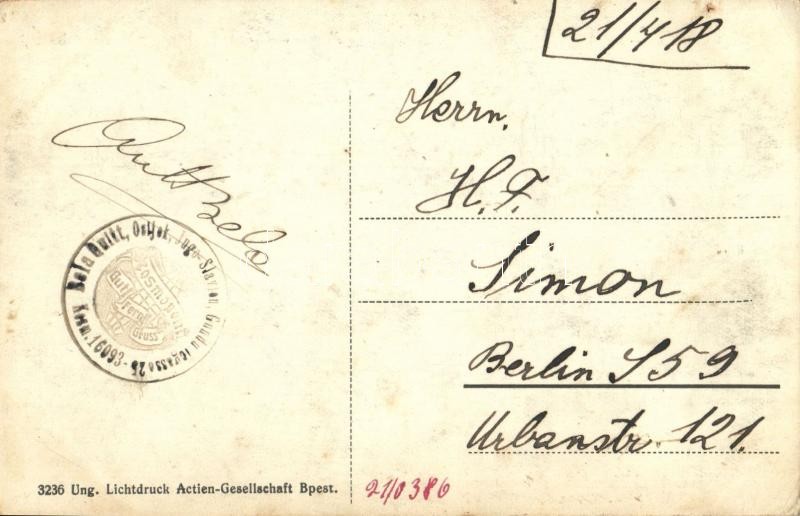 21/4 18
Herrn.
H. F.
Simon
Berlin S 59
Urbanstr. 121.
Quitt Bela
Bela Quitt, Osijek, Jugo-Slavien,
16093-
Kosmopolit
Gut
Fern
Gruss
3236 Ung. Lichtdruck Actien-Gesellschaft Bpest.
21/0386